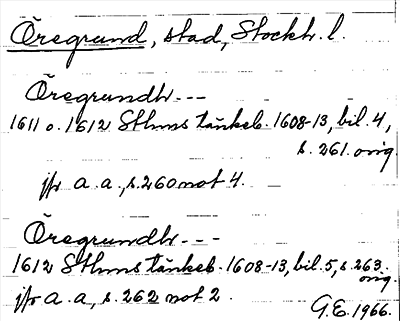 Öregrund, stad, Stockh. l.
Öregrundh ---
1611 o. 1612 Sthms tänkeb. 1608-13, bil. 4,
s. 261. orig.
jfr a. a., s. 260 not 4.
Öregrundh ---
1612 Sthms tänkeb. 1608-13, bil. 5, s. 263.
orig.
jfr a. a., s. 262 not 2.
G.E. 1966.